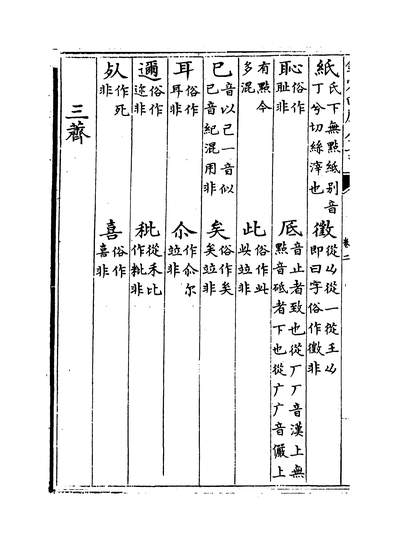 紙氏下無點紙别音丁兮切絲滓也 徵從𠂆從一從王厶即曰字俗作徵非
恥俗作耻非 厎音止者致也從厂厂音漢上無點音砥者下也從广广音儼上
有點今多混 此俗作此竝非
已音以已一音似已音紀混用非 矣俗作矣矣竝非
耳俗作耳非 尒作尒尔竝非
邇俗作迩非 秕從禾比作粃非
𣦸作死非 喜俗作喜非
三薺
卷二